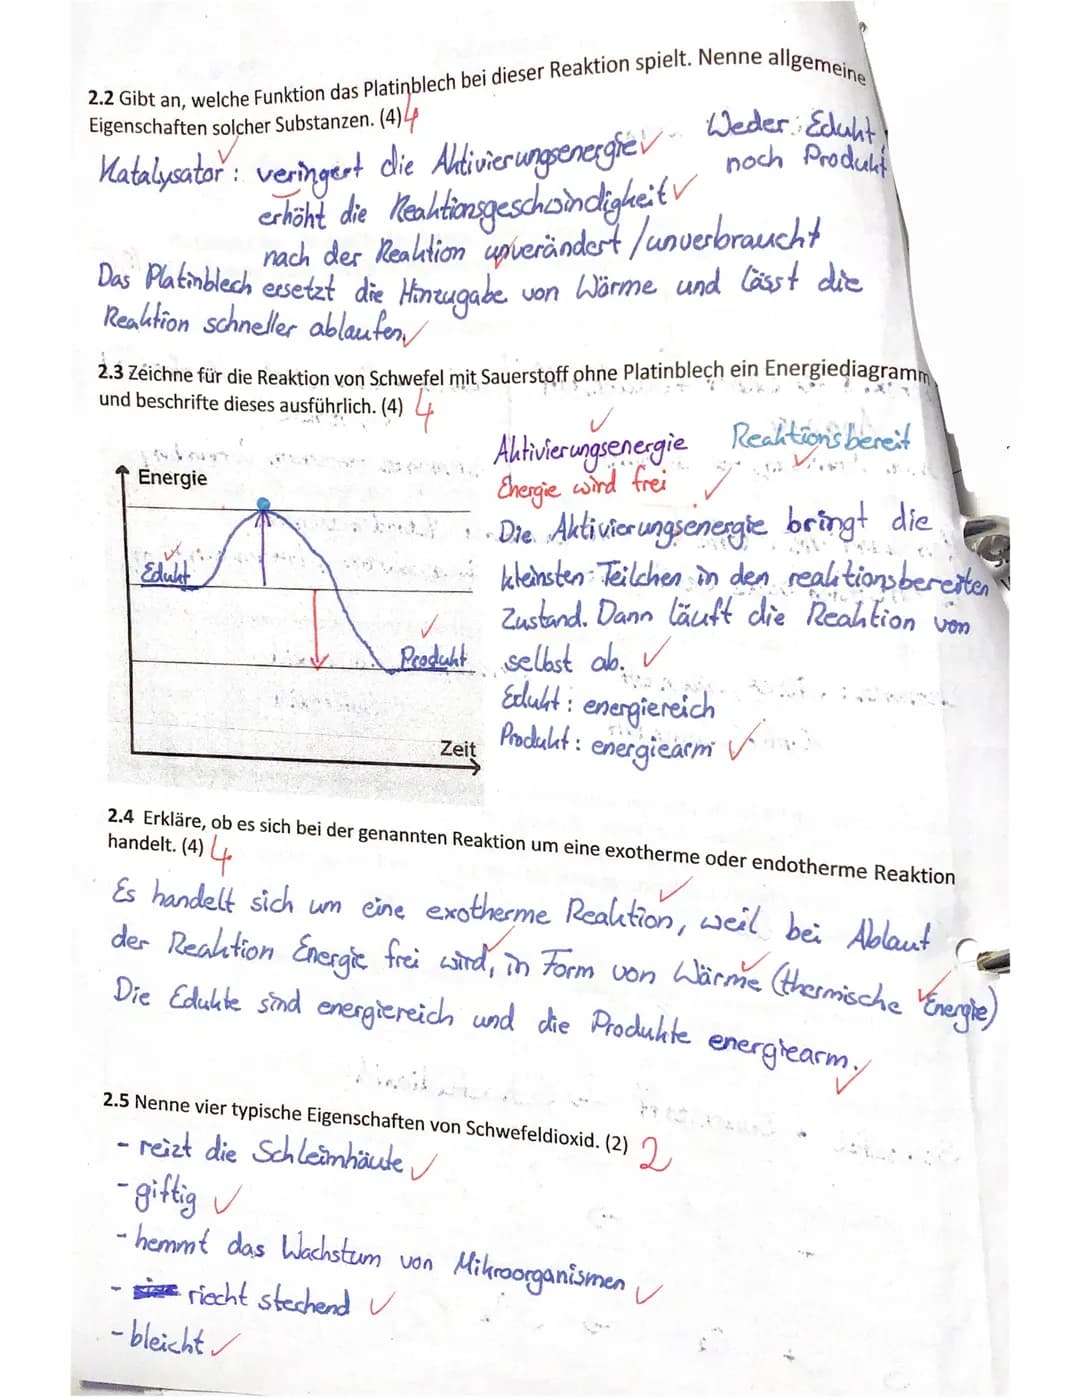 2.2 Gibt an, welche Funktion das Platinblech bei dieser Reaktion spielt. Nenne allgemeine
Eigenschaften solcher Substanzen. (4) 4
Katalysator: veringert die Aktivierungsenergie
Weder Edukt
noch Produkt
erhöht die Reaktionsgeschwindigkeit
nach der Reaktion unverändert/unverbraucht
Das Platinblech ersetzt die Hinzugabe von Wärme und lässt die
Reaktion schneller ablaufen.
2.3 Zeichne für die Reaktion von Schwefel mit Sauerstoff ohne Platinblech ein Energiediagramm
und beschrifte dieses ausführlich. (4) 4
Energie
Edukt
Produkt
Zeit
Aktivierungsenergie Reaktionsbereit
Energie wird frei
Die Aktivierungsenergie bringt die
kleinsten Teilchen in den reaktionsbereiten
Zustand. Dann läuft die Reaktion von
selbst ab.
Edukt: energiereich
Produkt: energiearm
2.4 Erkläre, ob es sich bei der genannten Reaktion um eine exotherme oder endotherme Reaktion
handelt. (4) 4
Es handelt sich um eine exotherme Reaktion, weil bei Ablauf
der Reaktion Energie frei wird, in Form von Wärme (thermische Energie)
Die Edukte sind energiereich und die Produkte energiearm.
2.5 Nenne vier typische Eigenschaften von Schwefeldioxid. (2) 2
- reizt die Schleimhäute
- giftig
- hemmt das Wachstum von Mikroorganismen
- riecht stechend
- bleicht